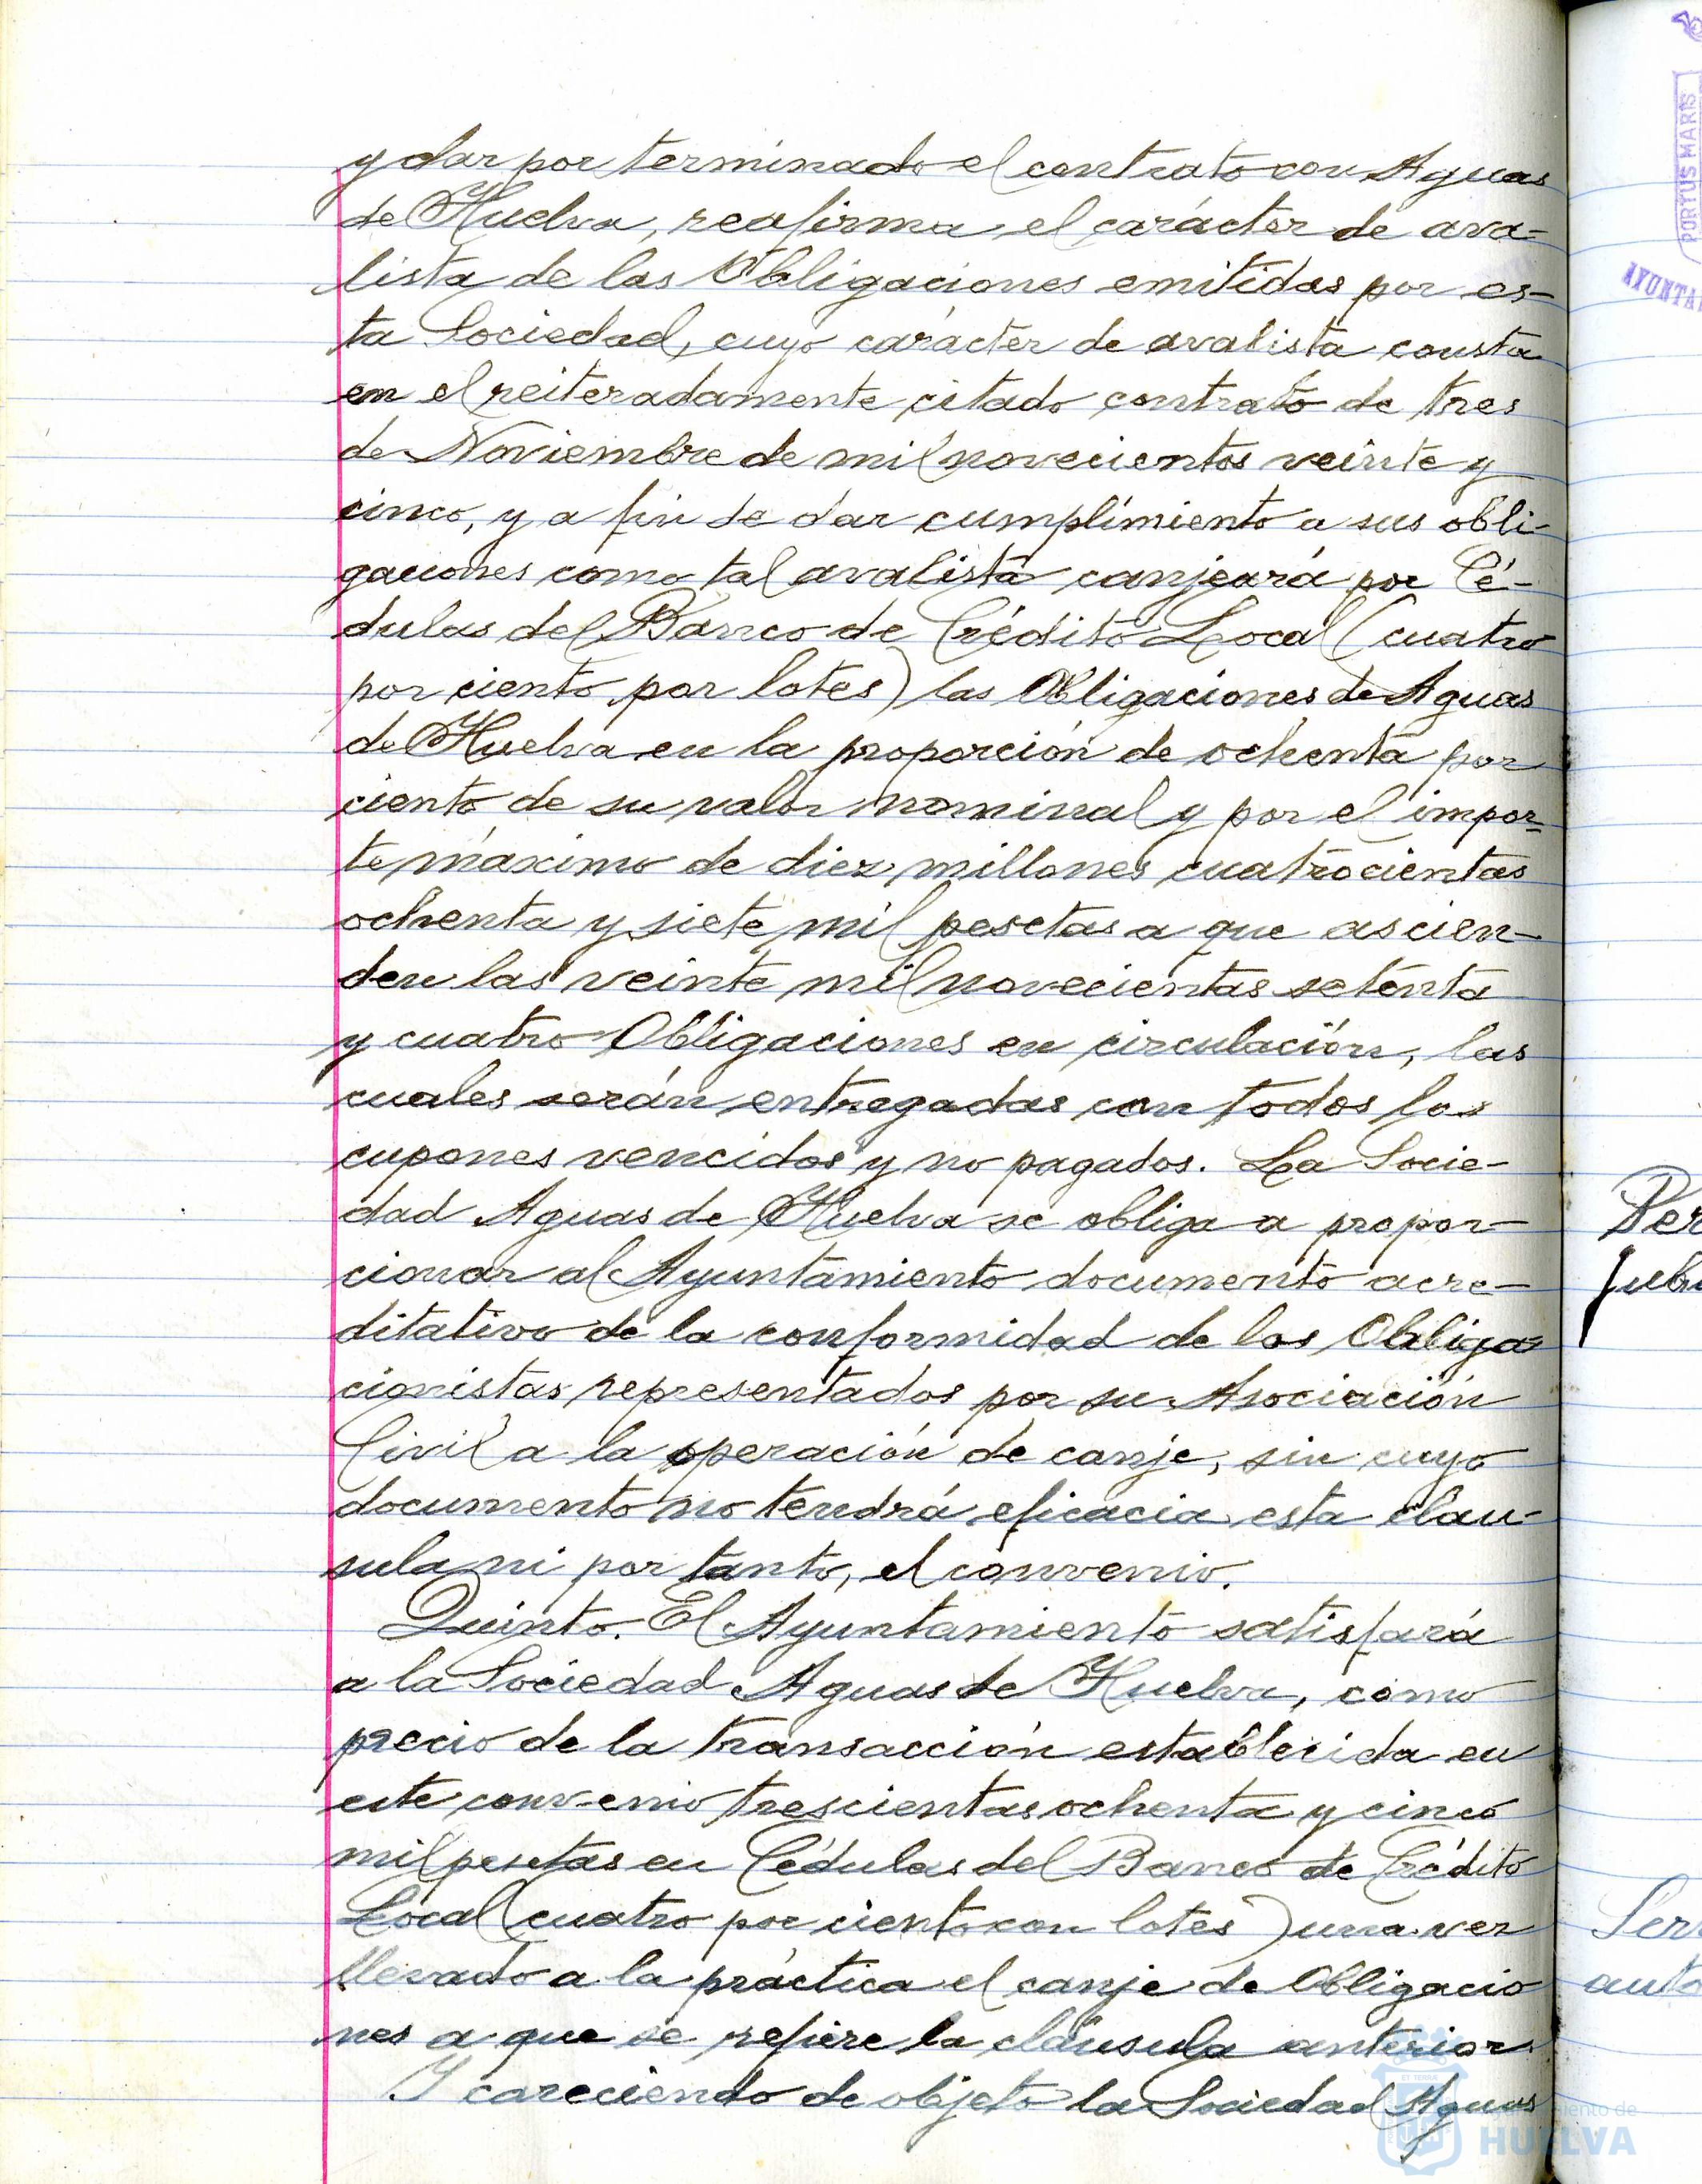 y dar por terminado el contrato con Aguas
de Huelva, reafirma el carácter de ava-
lista de las Obligaciones emitidas por es-
ta Sociedad, cuyo carácter de avalista consta
en el reiteradamente citado contrato de tres
de Noviembre de mil novecientos veinte y
cinco, y a fin de dar cumplimiento a sus obli-
gaciones como tal avalista canjeará por Cé-
dulas del Banco de Crédito Local (cuatro
por ciento por lotes) las Obligaciones de Aguas
de Huelva en la proporción de ochenta por
ciento de su valor nominal y por el impor-
te máximo de diez millones cuatrocientas
ochenta y siete mil pesetas a que ascien-
den las veinte mil novecientas setenta
y cuatro Obligaciones en circulación, las
cuales serán entregadas con todos los
cupones vencidos y no pagados. La Socie-
dad Aguas de Huelva se obliga a propor-
cionar al Ayuntamiento documento acre-
ditativo de la conformidad de los Obliga-
cionistas representados por su Asociación
Civil a la operación de canje, sin cuyo
documento no tendrá eficacia esta clau-
sula ni por tanto, el convenio.
Quinto. El Ayuntamiento satisfará
a la Sociedad Aguas de Huelva, como
precio de la transacción establecida en
este convenio trescientas ochenta y cinco
mil pesetas en Cédulas del Banco de Crédito
Local (cuatro por ciento con lotes) una vez
llevado a la práctica el canje de Obligacio
nes a que se refiere la cláusula anterior.
Y careciendo de objeto la Sociedad Aguas
PORTUS MARIS
AYUNTA
Per
jubi
Serv
auto
ET TERRAE
Ayuntamiento de
HUELVA